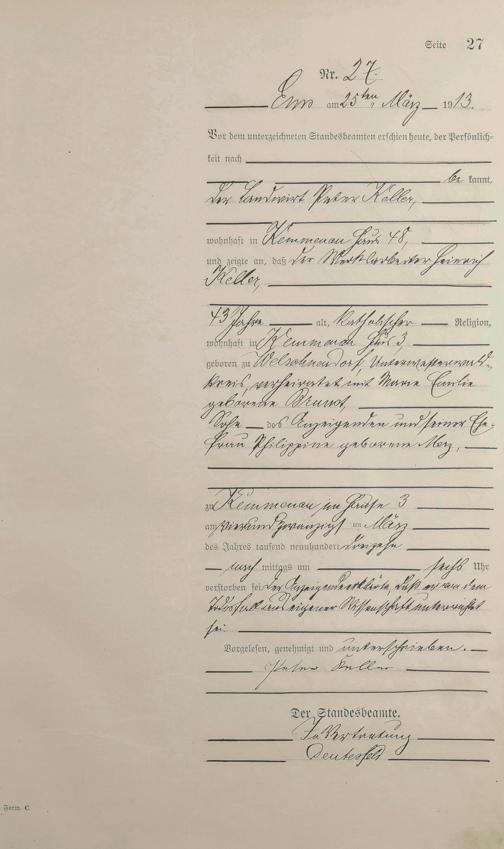 Seite 27
Nr. 27.
Ems am 25ten März 1913.
Vor dem unterzeichneten Standesbeamten erschien heute, der Persönlich-
keit nach
be kannt,
der Landwirt Peter Keller,
wohnhaft in Kemmenau Haus 48,
und zeigte an, daß der Werksarbeiter Heinrich
Keller,
43 Jahre alt, katholischer Religion,
wohnhaft in Kemmenau Haus 3
geboren zu Welschneudorf, Unterwesterwald-
kreis, verheiratet mit Marie Emilie
geborene
Sohn des Anzeigenden und seiner Ehe-
frau Philippine geborene
zu Kemmenau im Hause 3
am vierundzwanzigsten März
des Jahres tausend neunhundert dreizehn
nach mittags um sechs Uhr
verstorben sei. Der Anzeigende erklärte, daß er von dem
Todesfall aus eigener Wissenschaft unterrichtet
sei.
Vorgelesen, genehmigt und unterschrieben.
Peter Keller
Der Standesbeamte.
In Vertretung
Form. C.